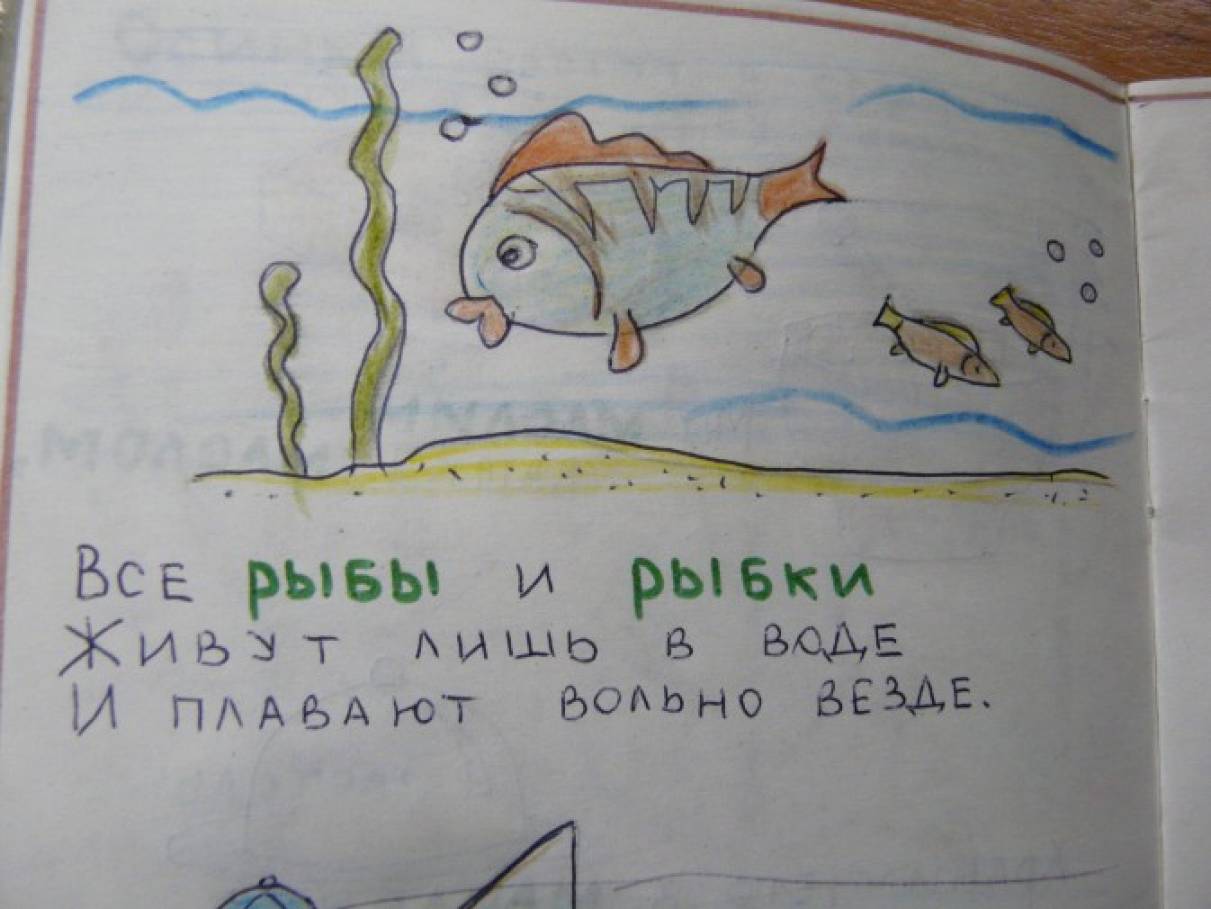 Все рыбы и рыбки
Живут лишь в воде
И плавают вольно везде.